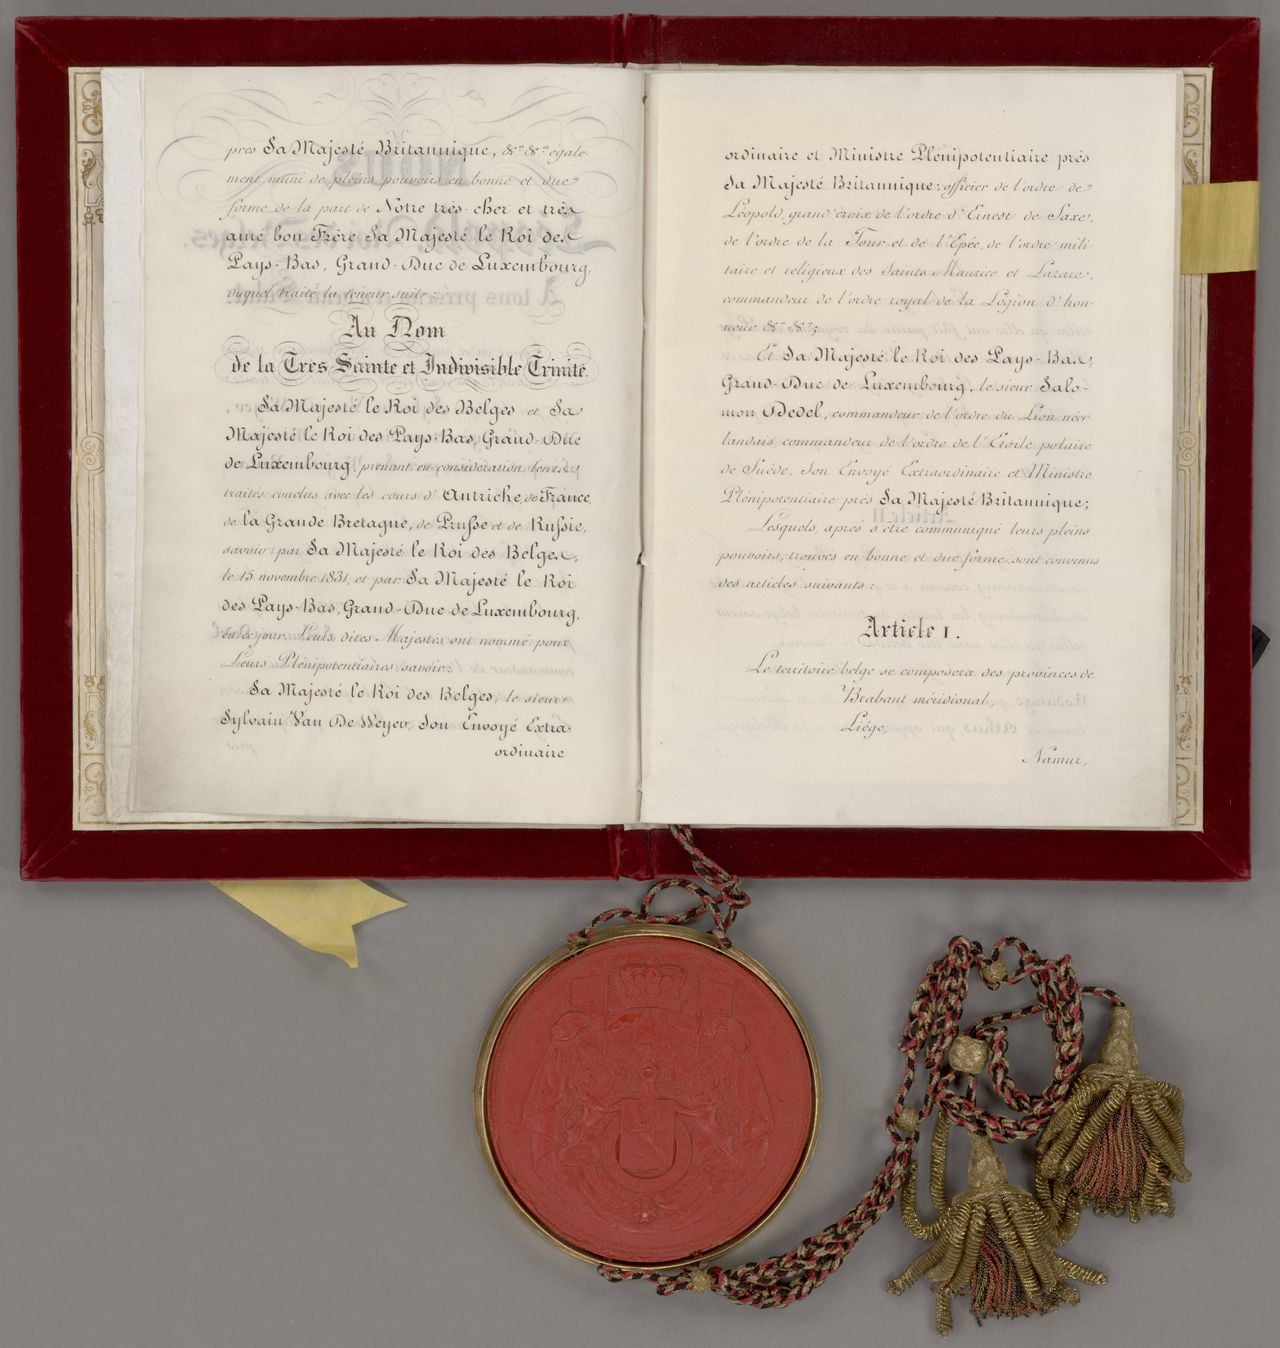 près Sa Majesté Britannique, &ca &ca egale-
ment muni de pleins pouvoirs en bonne et due
forme de la part de Notre très cher et très
aimé bon Frère Sa Majesté le Roi des
Pays-Bas, Grand-Duc de Luxembourg,
duquel traité la teneur suit:
Au Nom
de la Très Sainte et Indivisible Trinité.
Sa Majesté le Roi des Belges et Sa
Majesté le Roi des Pays-Bas, Grand-Duc
de Luxembourg, prenant en considération leurs
traités conclus avec les cours d'Autriche, de France,
de la Grande Bretagne, de Prusse et de Russie,
savoir: par Sa Majesté le Roi des Belges,
le 15 novembre 1831, et par Sa Majesté le Roi
des Pays-Bas, Grand-Duc de Luxembourg,
en ce jour, Leurs dites Majestés ont nommé pour
Leurs Plénipotentiaires, savoir:
Sa Majesté le Roi des Belges, le sieur
Sylvain Van De Weyer, Son Envoyé Extra-
ordinaire
ordinaire et Ministre Plénipotentiaire près
Sa Majesté Britannique; officier de l'ordre de
Léopold, grand'croix de l'ordre d'Ernest de Saxe,
de l'ordre de la Tour et de l'Epée, de l'ordre mili-
taire et religieux des Saints Maurice et Lazare,
commandeur de l'ordre royal de la Légion d'hon-
neur &ca &ca;
Et Sa Majesté le Roi des Pays-Bas,
Grand-Duc de Luxembourg, le sieur Salo-
mon Dedel, commandeur de l'ordre du Lion néer-
landais, commandeur de l'ordre de l'Etoile polaire
de Suède, Son Envoyé Extraordinaire et Ministre
Plénipotentiaire près Sa Majesté Britannique;
Lesquels, après s'être communiqué leurs pleins
pouvoirs, trouvés en bonne et due forme, sont convenus
des articles suivants:
Article I.
Le territoire belge se composera des provinces de
Brabant méridional,
Liége,
Namur,